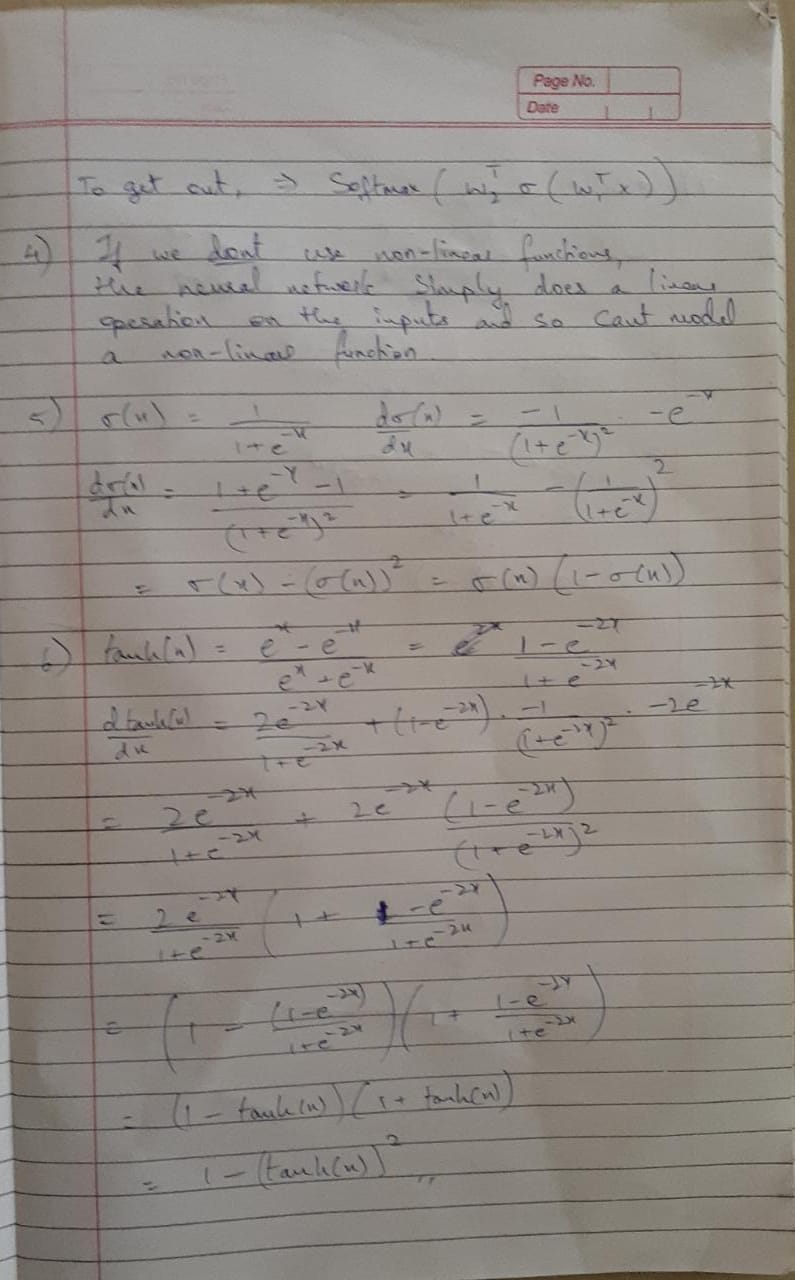 Page No.
Date
To get out, ⇒ Softmax ( W₂ᵀ σ ( W₁ᵀ x ) )
4) If we dont use non-linear functions,
the neural network simply does a linear
operation on the inputs and so cant model
a non-linear function
5) σ(x) = 1/(1+e^-x) dσ(x)/dx = -1/(1+e^-x)² · -e^-x
dσ(x)/dx = (1+e^-x -1)/(1+e^-x)² = 1/(1+e^-x) - (1/(1+e^-x))²
= σ(x) - (σ(x))² = σ(x) (1-σ(x))
6) tanh(x) = (e^x - e^-x)/(e^x + e^-x) = (1-e^-2x)/(1+e^-2x)
dtanh(x)/dx = 2e^-2x/(1+e^-2x) + (1-e^-2x) · -1/(1+e^-2x)² · -2e^-2x
= 2e^-2x/(1+e^-2x) + 2e^-2x (1-e^-2x)/(1+e^-2x)²
= 2e^-2x/(1+e^-2x) (1 + (1-e^-2x)/(1+e^-2x))
= (1 - (1-e^-2x)/(1+e^-2x)) (1 + (1-e^-2x)/(1+e^-2x))
= (1 - tanh(x)) (1 + tanh(x))
= 1 - (tanh(x))² ,,